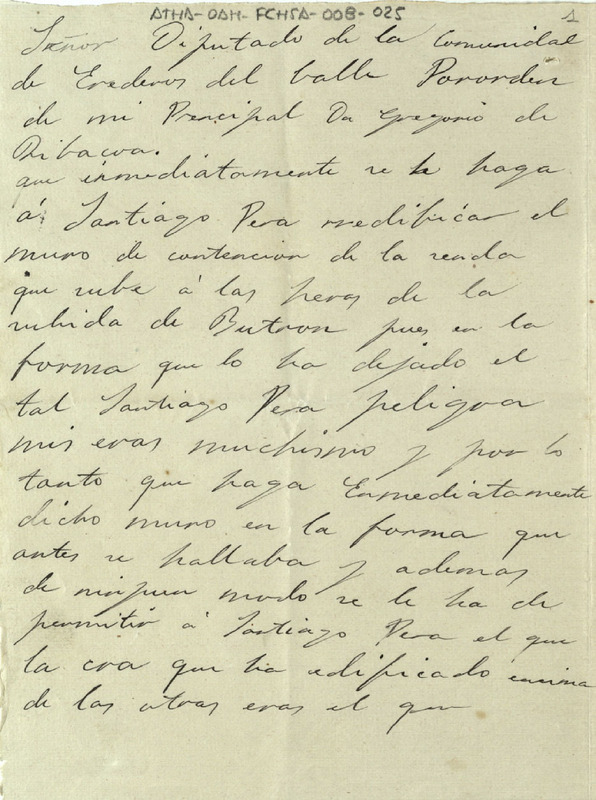 ATHA-DAH-FCHSA-008-025
1
Señor Diputado de la Comunidad
de Erederos del balle Pororden
de mi Prencipal Dn Gregorio de
Ribacoa.
que inmediátamente se le haga
á Santiago Pera reedificar el
muro de contencion de la senda
que sube á las heras de la
subida de Butron pues en la
forma que lo ha dejado el
tal Santiago Pera peligra
mis eras muchismo y por lo
tanto que haga Enmediátamente
dicho muro en la forma que
antes se hallaba y ademas
de ningun modo se le ha de
permitir á Santiago Pera el que
la era que ha edificado encima
de las otras eras el que